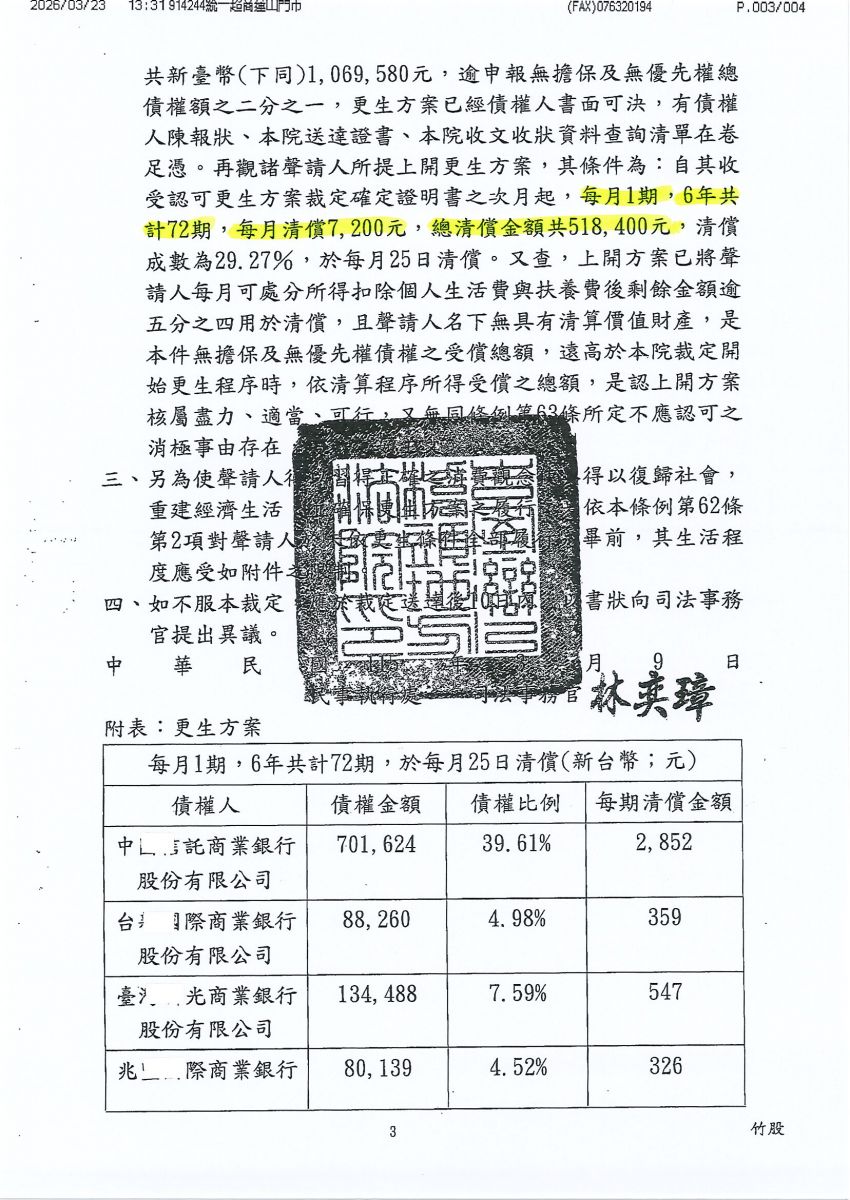 2026/03/23 13:31 914244統一超商蓮山門市 (FAX)076320194 P.003/004
共新臺幣(下同)1,069,580元，逾申報無擔保及無優先權總
債權額之二分之一，更生方案已經債權人書面可決，有債權
人陳報狀、本院送達證書、本院收文收狀資料查詢清單在卷
足憑。再觀諸聲請人所提上開更生方案，其條件為：自其收
受認可更生方案裁定確定證明書之次月起，每月1期，6年共
計72期，每月清償7,200元，總清償金額共518,400元，清償
成數為29.27%，於每月25日清償。又查，上開方案已將聲
請人每月可處分所得扣除個人生活費與扶養費後剩餘金額逾
五分之四用於清償，且聲請人名下無具有清算價值財產，是
本件無擔保及無優先權債權之受償總額，遠高於本院裁定開
始更生程序時，依清算程序所得受償之總額，是認上開方案
核屬盡力、適當、可行，又無同條例第63條所定不應認可之
消極事由存在
三、另為使聲請人得 習得正確之消費觀念 得以復歸社會，
重建經濟生活 確保更生方案之履行 依本條例第62條
第2項對聲請人 於未依更生條件全部履行完畢前，其生活程
度應受如附件之
四、如不服本裁定 於裁定送達後10日內 以書狀向司法事務
官提出異議。
中華民國 115 年 月 9 日
民事執行處 司法事務官 林奕璋
附表：更生方案
每月1期，6年共計72期，於每月25日清償(新台幣；元)
債權人 債權金額 債權比例 每期清償金額
中 信託商業銀行 701,624 39.61% 2,852
股份有限公司
台 國際商業銀行 88,260 4.98% 359
股份有限公司
臺 光商業銀行 134,488 7.59% 547
股份有限公司
兆 際商業銀行 80,139 4.52% 326
3 竹股